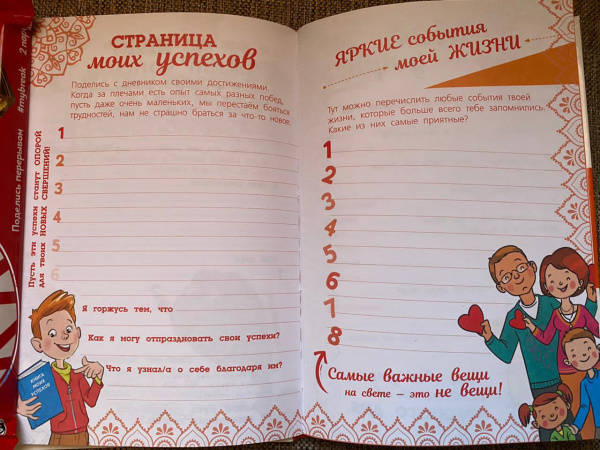 Поделись перерывом #mybreak 2 пер
СТРАНИЦА
моих успехов
Поделись с дневником своими достижениями.
Когда за плечами есть опыт самых разных побед,
пусть даже очень маленьких, мы перестаем бояться
трудностей, нам не страшно браться за что-то новое.
Пусть эти успехи станут ОПОРОЙ
для твоих НОВЫХ СВЕРШЕНИЙ!
1
2
3
4
5
6
Я горжусь тем, что
Как я могу отпраздновать свои успехи?
Что я узнал/а о себе благодаря им?
КНИГА
МОИХ
УСПЕХОВ
ЯРКИЕ события
моей ЖИЗНИ
Тут можно перечислить любые события твоей
жизни, которые больше всего тебе запомнились.
Какие из них самые приятные?
1
2
3
4
5
6
7
8
Самые важные вещи
на свете — это не вещи!